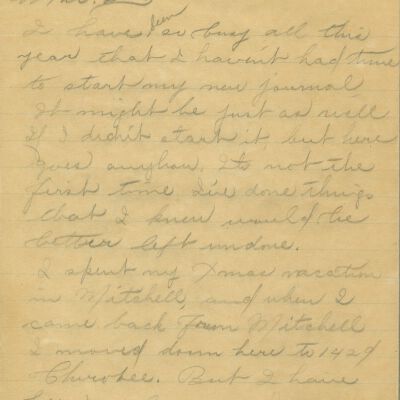 I have been so busy all this
year that I haven't had time
to start my new journal
It might be just as well
if I didn't start it, but here
goes anyhow. Its not the
first time I've done things
that I knew would be
better left undone.
I spent my Xmas vacation
in Mitchell, and when I
came back from Mitchell
I moved down here to 1429
Cherokee. But I have